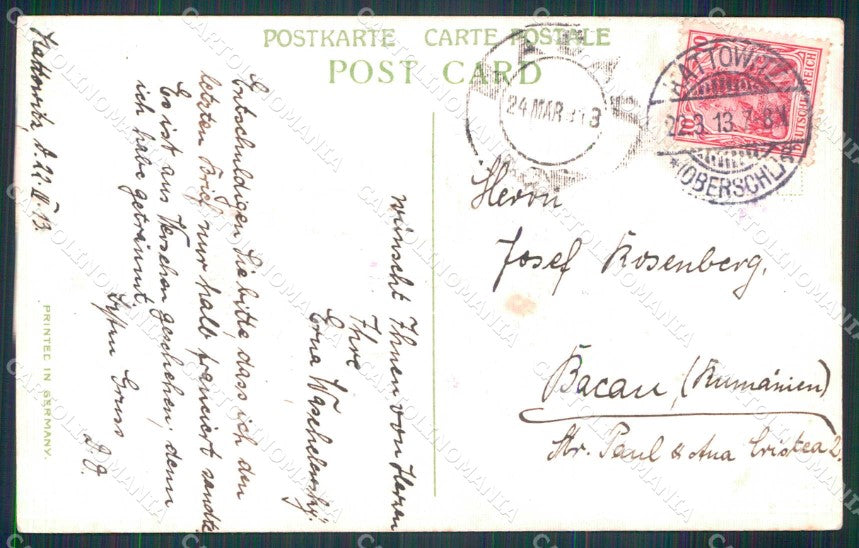 POSTKARTE CARTE POSTALE
POST CARD
10
10
DEUTSCHES REICH
KATTOWITZ
22.3.13. 7-8 N
*(OBERSCHL)
24 MAR 913
Herrn
Josef Rosenberg.
Bacau, (Rumänien)
Str. Paul & Ana Cristea 2.
Kattowitz, d. 22. 13.
Entschuldigen Sie bitte, dass ich den
letzten Brief nur halb frankiert sandte
Es ist aus Versehen geschehen, denn
ich habe geträumt.
Gruss
D. O.
wünscht Ihnen von Herzen
Ihre
Erna
PRINTED IN GERMANY.
CARTOLINOMANIA